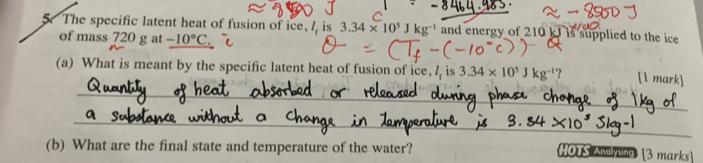 ≈ 8500 J - 8464.985. ≈ - 8500 J
5. The specific latent heat of fusion of ice, lf is 3.34 × 10⁵ J kg⁻¹ and energy of 210 kJ is supplied to the ice
of mass 720 g at –10°C. θ = (Tf - (-10°C)) Q
(a) What is meant by the specific latent heat of fusion of ice, lf is 3.34 × 10⁵ J kg⁻¹? [1 mark]
Quantity of heat absorbed or released during phase change of 1kg of
a substance without a change in temperature is 3.34 ×10⁵ Jkg-1
(b) What are the final state and temperature of the water? HOTS Analysing [3 marks]